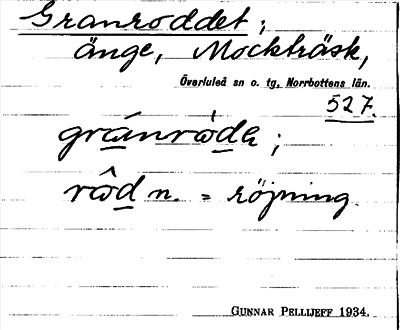 Granroddet;
änge, Mockträsk,
Överluleå sn o. tg. Norrbottens län.
527.
gránròde;
rôd n. = röjning.
GUNNAR PELLIJEFF 1934.